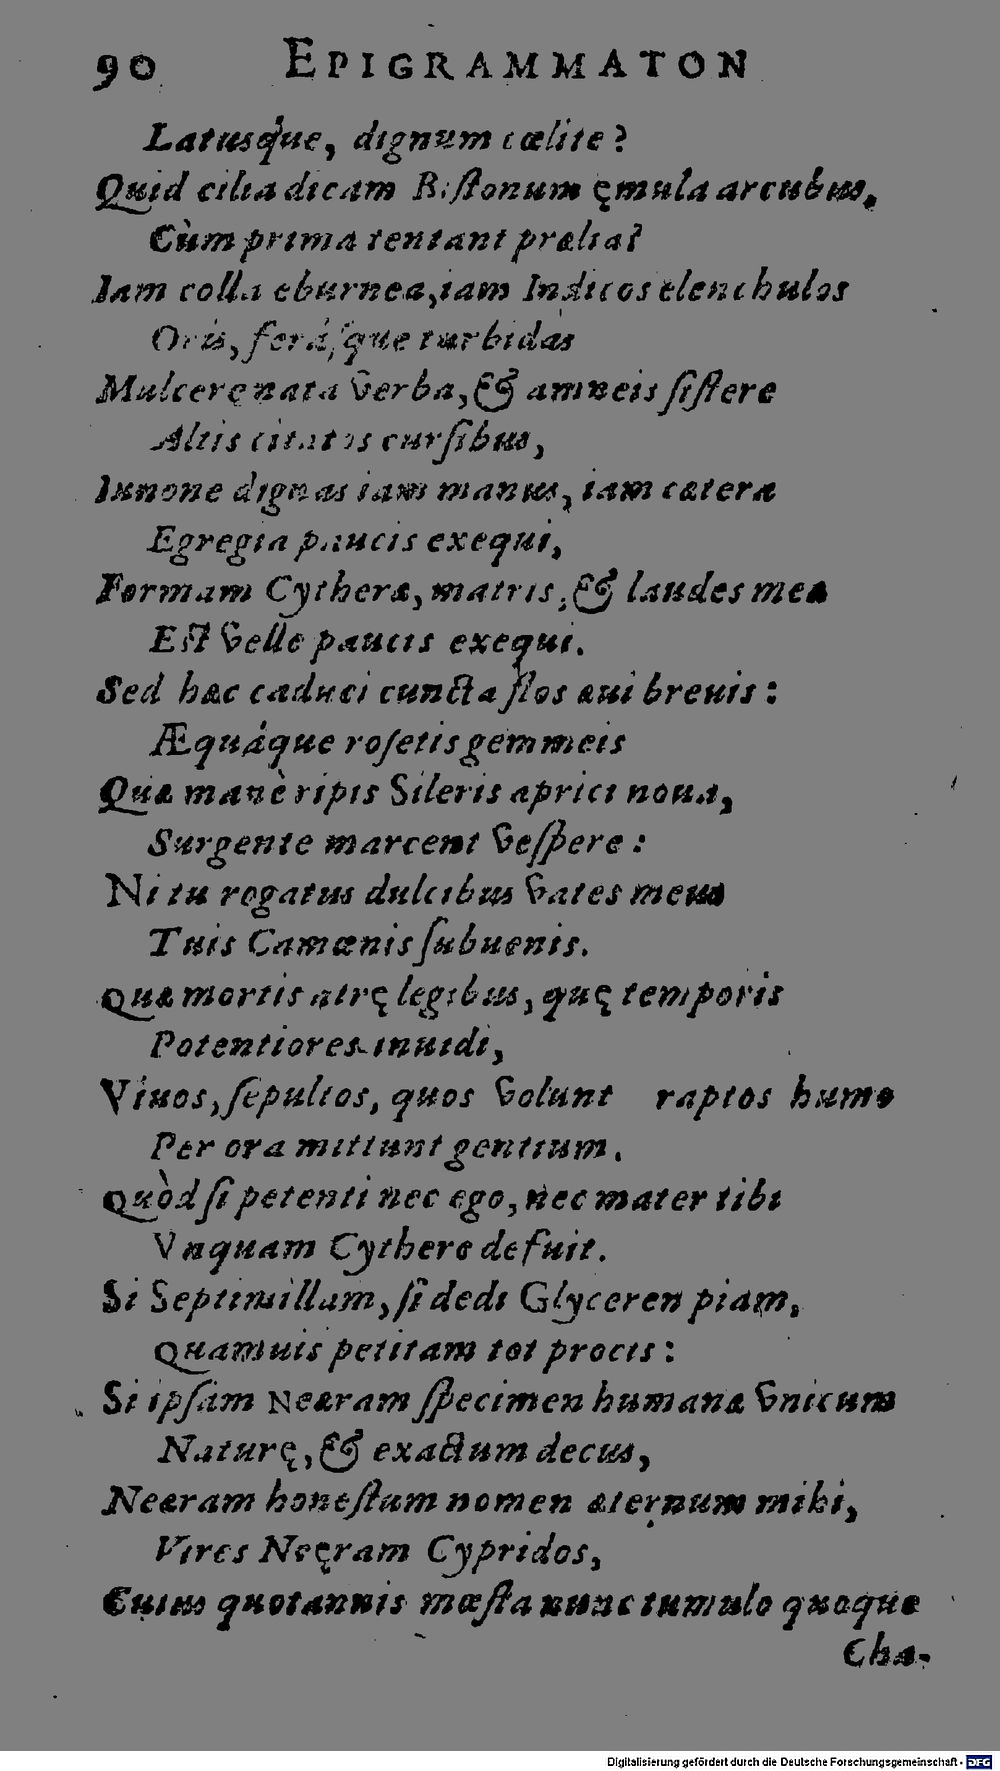 90 EPIGRAMMATON
Latusq́ue, dignum cœlite?
Quid cilia dicam Bistonum ęmula arcubus,
Cùm prima tentant prælia?
Iam colla eburnea, iam Indicos elenchulos
Oris, ferásque turbidas
Mulcere nata verba, & amneis sistere
Altis citatos cursibus,
Iunone dignas iam manus, iam cætera
Egregia paucis exequi,
Formam Cytheræ, matris, & laudes meæ
Est velle paucis exequi.
Sed hæc caduci cuncta flos æui breuis:
Æquáque rosetis gemmeis
Quæ manè ripis Sileris aprici noua,
Surgente marcent vespere:
Ni tu rogatus dulcibus vates meus
Tuis Camœnis subuenis.
Quæ mortis atrę legibus, quę temporis
Potentiores inuidi,
Viuos, sepultos, quos volunt raptos humo
Per ora mittunt gentium.
Quòd si petenti nec ego, nec mater tibi
Vnquam Cythere defuit.
Si Septimillam, si dedi Glyceren piam,
Quamuis petitam tot procis:
Si ipsam Neæram specimen humanæ vnicum
Naturę, & exactum decus,
Neæram honestum nomen æternum mihi,
Vires Neęram Cypridos,
Cuius quotannis mœsta nunc tumulo quoque
Cha-
Digitalisierung gefördert durch die Deutsche Forschungsgemeinschaft - DFG